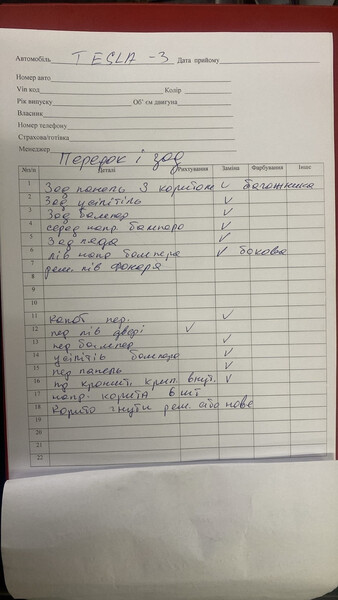 Автомобіль TESLA -3 Дата прийому
Номер авто
Vin код Колір
Рік випуску Об'єм двигуна
Власник
Номер телефону
Страхова/готівка
Менеджер Передок і зад
№п/п Деталі Рихтування Заміна Фарбування Інше
1 Зад панель З коритом ✓ багажника
2 Зад усілітіль ✓
3 Зад бампар ✓
4 серед напр. бампара ✓
5 Зад ляда ✓
6 лів напр бампера ✓ бокова
7 рем. лів фонаря
8
9
10
11 капот пер. ✓
12 пер лів двері ✓
13 пер бампер ✓
14 усілітіль бампара ✓
15 пер панель ✓
16 пд кроншт. крил. внут. ✓
17 напр. корита 8 шт
18 Корито гнути рем. або нове
19
20
21
22